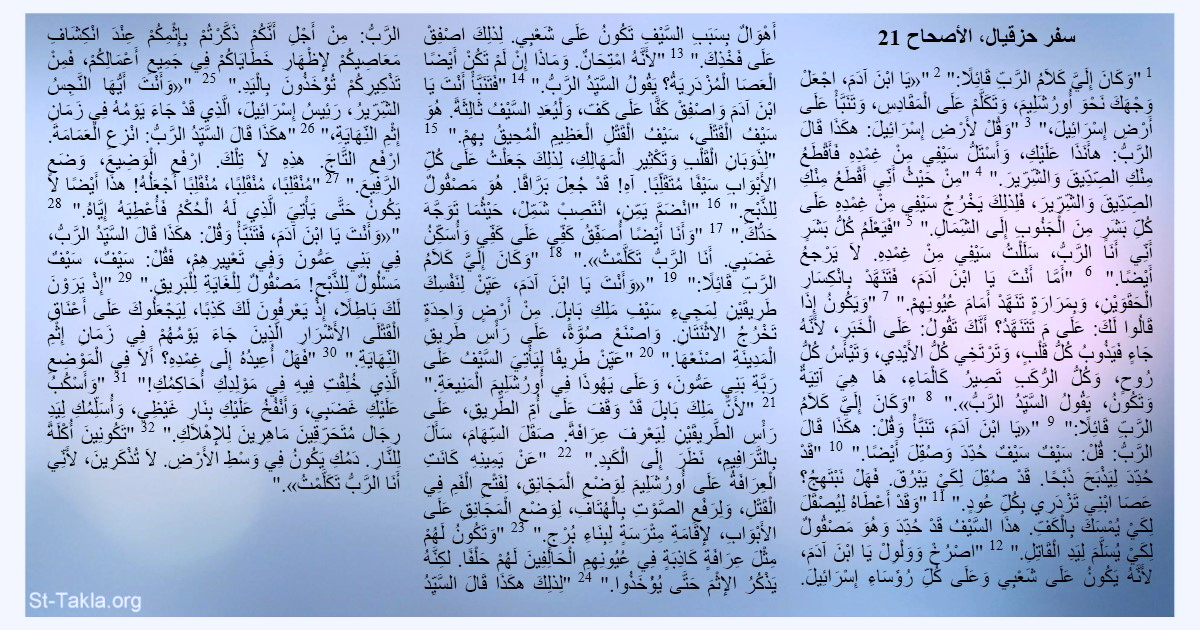 سفر حزقيال، الأصحاح 21
1 "وَكَانَ إِلَيَّ كَلاَمُ الرَّبِّ قَائِلاً:" 2 "«يَا ابْنَ آدَمَ، اجْعَلْ
وَجْهَكَ نَحْوَ أُورُشَلِيمَ، وَتَكَلَّمْ عَلَى الْمَقَادِسِ، وَتَنَبَّأْ عَلَى
أَرْضِ إِسْرَائِيلَ،" 3 "وَقُلْ لأَرْضِ إِسْرَائِيلَ: هكَذَا قَالَ
الرَّبُّ: هأَنَذَا عَلَيْكِ، وَأَسْتَلُّ سَيْفِي مِنْ غِمْدِهِ فَأَقْطَعُ
مِنْكِ الصِّدِّيقَ وَالشِّرِّيرَ." 4 "مِنْ حَيْثُ أَنِّي أَقْطَعُ مِنْكِ
الصِّدِّيقَ وَالشِّرِّيرَ، فَلِذلِكَ يَخْرُجُ سَيْفِي مِنْ غِمْدِهِ عَلَى
كُلِّ بَشَرٍ مِنَ الْجَنُوبِ إِلَى الشِّمَالِ." 5 "فَيَعْلَمُ كُلُّ بَشَرٍ
أَنِّي أَنَا الرَّبُّ، سَلَلْتُ سَيْفِي مِنْ غِمْدِهِ. لاَ يَرْجعُ
أَيْضًا." 6 "أَمَّا أَنْتَ يَا ابْنَ آدَمَ، فَتَنَهَّدْ بِانْكِسَارِ
الْحَقَوَيْنِ، وَبِمَرَارَةٍ تَنَهَّدْ أَمَامَ عُيُونِهِمْ." 7 "وَيَكُونُ إِذَا
قَالُوا لَكَ: عَلَى مَ تَتَنَهَّدُ؟ أَنَّكَ تَقُولُ: عَلَى الْخَبَرِ، لأَنَّهُ
جَاءٍ فَيَذُوبُ كُلُّ قَلْبٍ، وَتَرْتَخِي كُلُّ الأَيْدِي، وَتَيْأَسُ كُلُّ
رُوحٍ، وَكُلُّ الرُّكَبِ تَصِيرُ كَالْمَاءِ، هَا هِيَ آتِيَةٌ
وَتَكُونُ، يَقُولُ السَّيِّدُ الرَّبُّ»." 8 "وَكَانَ إِلَيَّ كَلاَمُ
الرَّبِّ قَائِلاً:" 9 "«يَا ابْنَ آدَمَ، تَنَبَّأْ وَقُلْ: هكَذَا قَالَ
الرَّبُّ: قُلْ: سَيْفٌ سَيْفٌ حُدِّدَ وَصُقِلَ أَيْضًا." 10 "قَدْ
حُدِّدَ لِيَذْبَحَ ذَبْحًا. قَدْ صُقِلَ لِكَيْ يَبْرُقَ. فَهَلْ نَبْتَهِجُ؟
عَصَا ابْنِي تَزْدَرِي بِكُلِّ عُودٍ." 11 "وَقَدْ أَعْطَاهُ لِيُصْقَلَ
لِكَيْ يُمْسَكَ بِالْكَفِّ. هذَا السَّيْفُ قَدْ حُدِّدَ وَهُوَ مَصْقُولٌ
لِكَيْ يُسَلَّمَ لِيَدِ الْقَاتِلِ." 12 "اصْرُخْ وَوَلْوِلْ يَا ابْنَ آدَمَ،
لأَنَّهُ يَكُونُ عَلَى شَعْبِي وَعَلَى كُلِّ رُؤَسَاءِ إِسْرَائِيلَ.
أَهْوَالٌ بِسَبَبِ السَّيْفِ تَكُونُ عَلَى شَعْبِي. لِذلِكَ اصْفِقْ
عَلَى فَخْذِكَ." 13 "لأَنَّهُ امْتِحَانٌ. وَمَاذَا إِنْ لَمْ تَكُنْ أَيْضًا
الْعَصَا الْمُزْدَرِيَةُ؟ يَقُولُ السَّيِّدُ الرَّبُّ." 14 "فَتَنَبَّأْ أَنْتَ يَا
ابْنَ آدَمَ وَاصْفِقْ كَفًّا عَلَى كَفٍّ، وَلْيُعَدِ السَّيْفُ ثَالِثَةً. هُوَ
سَيْفُ الْقَتْلَى، سَيْفُ الْقَتْلِ الْعَظِيمِ الْمُحِيقُ بِهِمْ." 15
"لِذَوَبَانِ الْقَلْبِ وَتَكْثِيرِ الْمَهَالِكِ، لِذلِكَ جَعَلْتُ عَلَى كُلِّ
الأَبْوَابِ سَيْفًا مُتَقَلِّبًا. آهِ! قَدْ جُعِلَ بَرَّاقًا. هُوَ مَصْقُولٌ
لِلذَّبْحِ." 16 "انْضَمَّ يَمِّنِ، انْتَصِبْ شَمِّلْ، حَيْثُمَا تَوَجَّهَ
حَدُّكَ." 17 "وَأَنَا أَيْضًا أُصَفِّقُ كَفِّي عَلَى كَفِّي وَأُسَكِّنُ
غَضَبِي. أَنَا الرَّبُّ تَكَلَّمْتُ»." 18 "وَكَانَ إِلَيَّ كَلاَمُ
الرَّبِّ قَائِلاً:" 19 "«وَأَنْتَ يَا ابْنَ آدَمَ، عَيِّنْ لِنَفْسِكَ
طَرِيقَيْنِ لِمَجِيءِ سَيْفِ مَلِكِ بَابِلَ. مِنْ أَرْضٍ وَاحِدَةٍ
تَخْرُجُ الاثْنَتَانِ. وَاصْنَعْ صُوَّةً، عَلَى رَأْسِ طَرِيقِ
الْمَدِينَةِ اصْنَعْهَا." 20 "عَيِّنْ طَرِيقًا لِيَأْتِيَ السَّيْفُ عَلَى
رَبَّةِ بَنِي عَمُّونَ، وَعَلَى يَهُوذَا فِي أُورُشَلِيمَ الْمَنِيعَةِ."
21 "لأَنَّ مَلِكَ بَابِلَ قَدْ وَقَفَ عَلَى أُمِّ الطَّرِيقِ، عَلَى
رَأْسِ الطَّرِيقَيْنِ لِيَعْرِفَ عِرَافَةً. صَقَلَ السِّهَامَ، سَأَلَ
بِالتَّرَافِيمِ، نَظَرَ إِلَى الْكَبِدِ." 22 "عَنْ يَمِينِهِ كَانَتِ
الْعِرَافَةُ عَلَى أُورُشَلِيمَ لِوَضْعِ الْمَجَانِقِ، لِفَتْحِ الْفَمِ فِي
الْقَتْلِ، وَلِرَفْعِ الصَّوْتِ بِالْهُتَافِ، لِوَضْعِ الْمَجَانِقِ عَلَى
الأَبْوَابِ، لإِقَامَةِ مِتْرَسَةٍ لِبِنَاءِ بُرْجٍ." 23 "وَتَكُونُ لَهُمْ
مِثْلَ عِرَافَةٍ كَاذِبَةٍ فِي عُيُونِهِمِ الْحَالِفِينَ لَهُمْ حَلْفًا. لكِنَّهُ
يَذْكُرُ الإِثْمَ حَتَّى يُؤْخَذُوا." 24 "لِذلِكَ هكَذَا قَالَ السَّيِّدُ
الرَّبُّ: مِنْ أَجْلِ أَنَّكُمْ ذَكَّرْتُمْ بِإِثْمِكُمْ عِنْدَ انْكِشَافِ
مَعَاصِيكُمْ لإِظْهَارِ خَطَايَاكُمْ فِي جَمِيعِ أَعْمَالِكُمْ، فَمِنْ
تَذْكِيرِكُمْ تُؤْخَذُونَ بِالْيَدِ." 25 "«وَأَنْتَ أَيُّهَا النَّجِسُ
الشِّرِّيرُ، رَئِيسُ إِسْرَائِيلَ، الَّذِي قَدْ جَاءَ يَوْمُهُ فِي زَمَانِ
إِثْمِ النِّهَايَةِ،" 26 "هكَذَا قَالَ السَّيِّدُ الرَّبُّ: انْزِعِ الْعَمَامَةَ.
ارْفَعِ التَّاجَ. هذِهِ لاَ تِلْكَ. ارْفَعِ الْوَضِيعَ، وَضَعِ
الرَّفِيعَ." 27 "مُنْقَلِبًا، مُنْقَلِبًا، مُنْقَلِبًا أَجْعَلُهُ! هذَا أَيْضًا لاَ
يَكُونُ حَتَّى يَأْتِيَ الَّذِي لَهُ الْحُكْمُ فَأُعْطِيَهُ إِيَّاهُ." 28
"«وَأَنْتَ يَا ابْنَ آدَمَ، فَتَنَبَّأْ وَقُلْ: هكَذَا قَالَ السَّيِّدُ الرَّبُّ،
فِي بَنِي عَمُّونَ وَفِي تَعْيِيرِهِمْ، فَقُلْ: سَيْفٌ، سَيْفٌ
مَسْلُولٌ لِلذَّبْحِ! مَصْقُولٌ لِلْغَايَةِ لِلْبَرِيقِ." 29 "إِذْ يَرَوْنَ
لَكَ بَاطِلاً، إِذْ يَعْرِفُونَ لَكَ كَذِبًا، لِيَجْعَلُوكَ عَلَى أَعْنَاقِ
الْقَتْلَى الأَشْرَارِ الَّذِينَ جَاءَ يَوْمُهُمْ فِي زَمَانِ إِثْمِ
النِّهَايَةِ." 30 "فَهَلْ أُعِيدُهُ إِلَى غِمْدِهِ؟ أَلاَ فِي الْمَوْضِعِ
الَّذِي خُلِقْتِ فِيهِ فِي مَوْلِدِكِ أُحَاكِمُكِ!" 31 "وَأَسْكُبُ
عَلَيْكِ غَضَبِي، وَأَنْفُخُ عَلَيْكِ بِنَارِ غَيْظِي، وَأُسَلِّمُكِ لِيَدِ
رِجَال مُتَحَرِّقِينَ مَاهِرِينَ لِلإِهْلاَكِ." 32 "تَكُونِينَ أُكْلَةً
لِلنَّارِ. دَمُكِ يَكُونُ فِي وَسْطِ الأَرْضِ. لاَ تُذْكَرِينَ، لأَنِّي
أَنَا الرَّبُّ تَكَلَّمْتُ»."
St-Takla.org